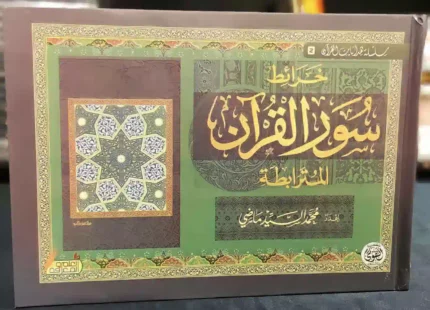 سلسلة هدايات القرآن ٥
خرائط
سُورِ القُرآن
المترابطة
إعداد: محمد السيد ماضي